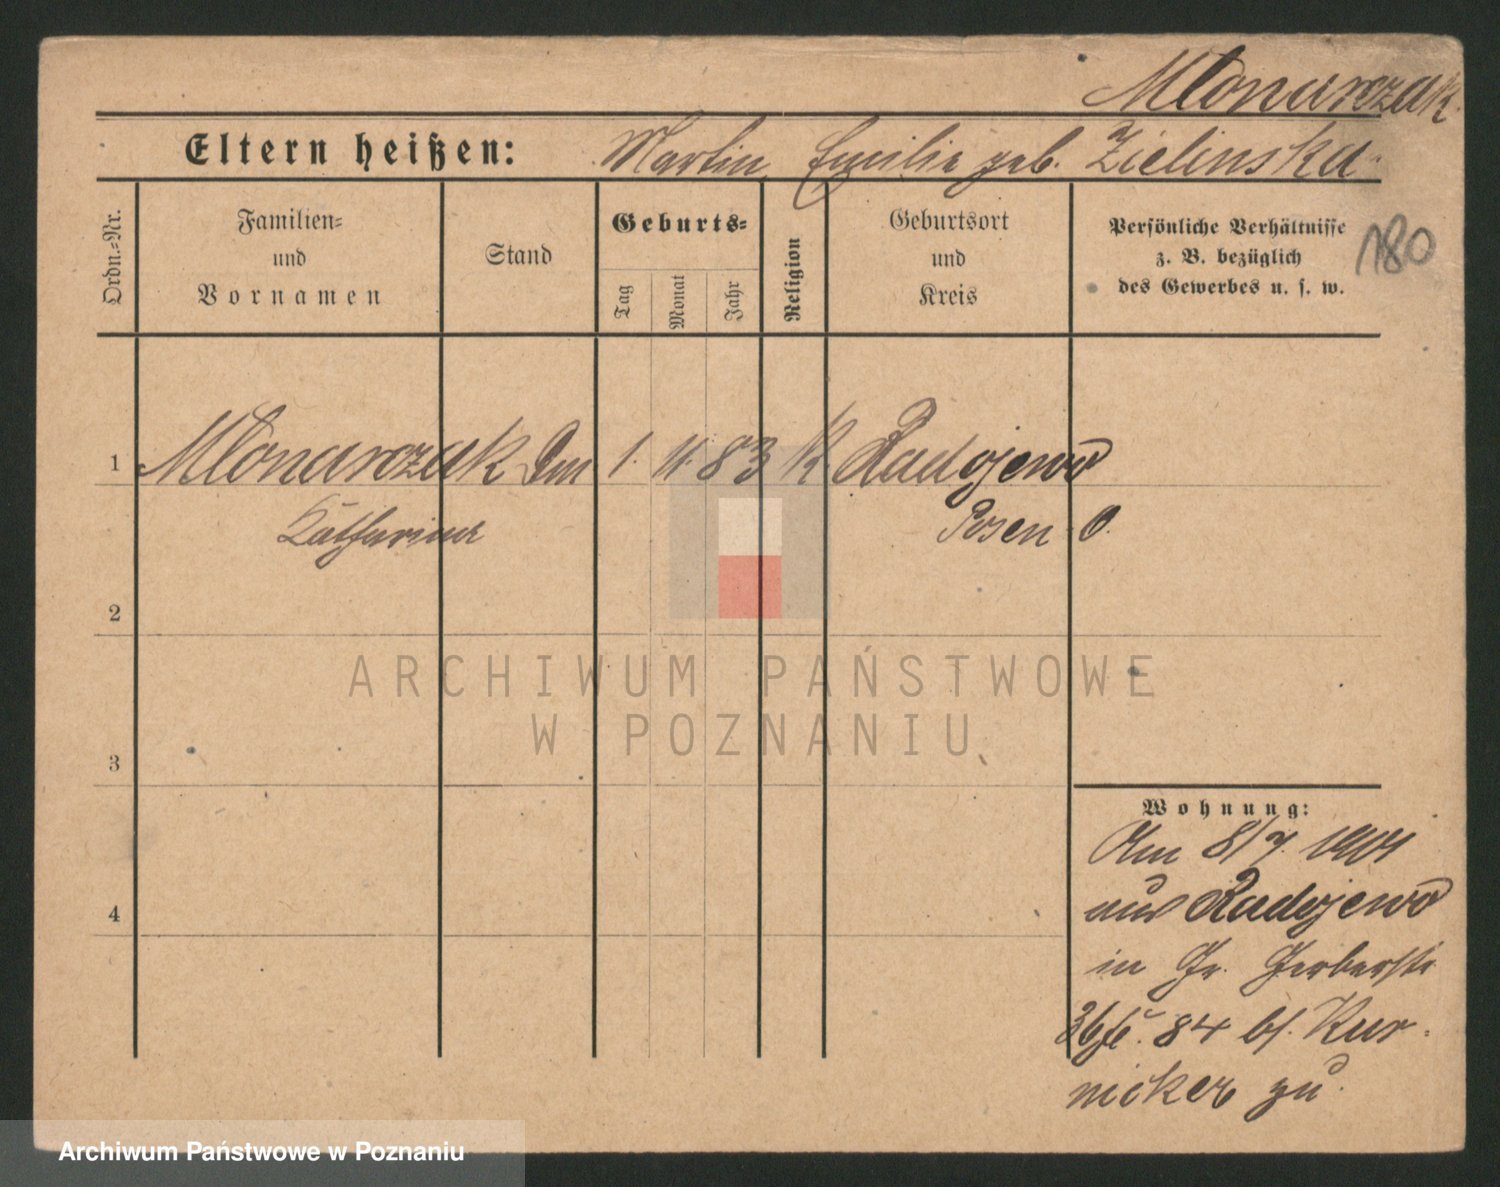 Młonarczak.
Eltern heißen: Martin, Emilie geb. Zielinska
Ordn.=Nr.
Familien=
und
Vornamen
Stand
Geburts=
Tag
Monat
Jahr
Religion
Geburtsort
und
Kreis
Persönliche Verhältnisse
z. B. bezüglich
des Gewerbes u. s. w.
180
1 Młonarczak 1. 11. 83 K Radojewo
Katharina Posen O.
2
3
4
Wohnung:
Am 8/7. 1901
aus Radojewo
in Gr. Gerberstr
36 84 b/. Kur-
nicker zu.
ARCHIWUM PAŃSTWOWE
W POZNANIU
Archiwum Państwowe w Poznaniu